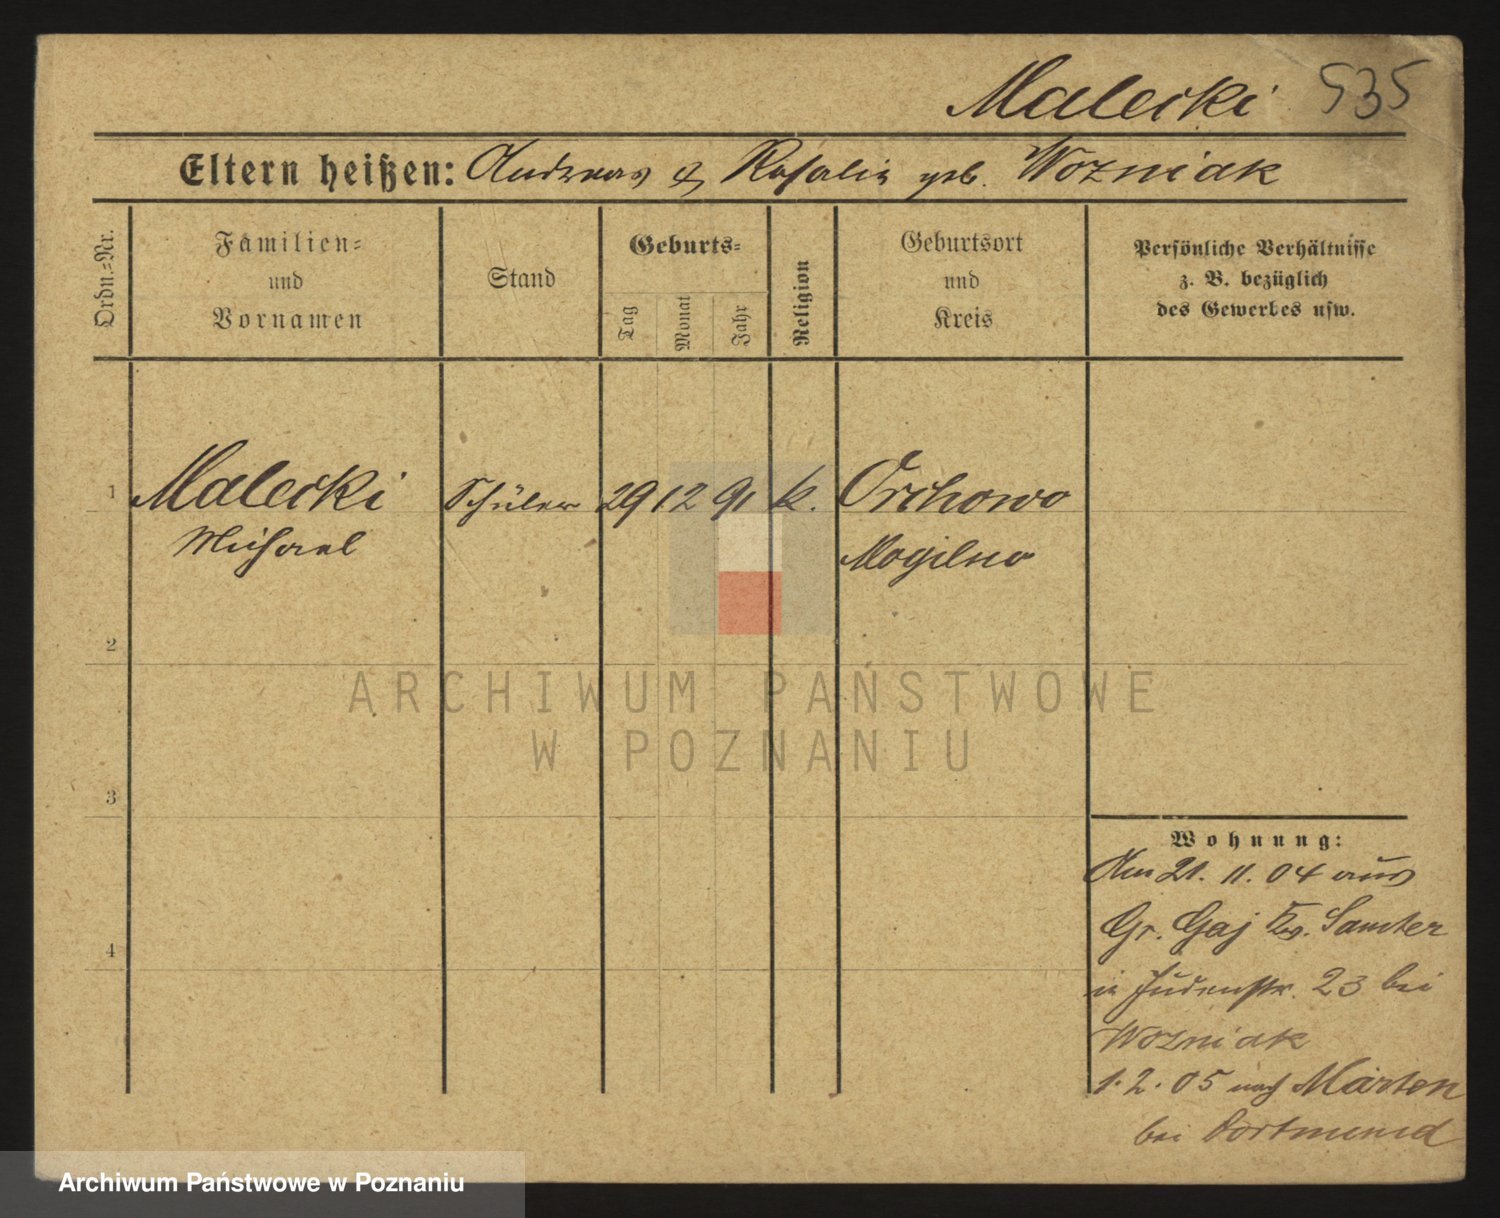 Malecki 535
Eltern heißen: Andreas & Rosalie geb. Wozniak
Ordn.=Nr.
Familien=
und
Vornamen
Stand
Geburts=
Tag
Monat
Jahr
Religion
Geburtsort
und
Kreis
Persönliche Verhältnisse
z. B. bezüglich
des Gewerbes usw.
1 Malecki Schüler 29 12 91 k. Orchowo
Michael Mogilno
2
ARCHIWUM PAŃSTWOWE
W POZNANIU
3
Wohnung:
Am 21. 11. 04 aus
Gr. Gaj Kr. Samter
in Judenstr. 23 bei
4
Wozniak
1. 2. 05 nach Marten
bei Dortmund
Archiwum Państwowe w Poznaniu